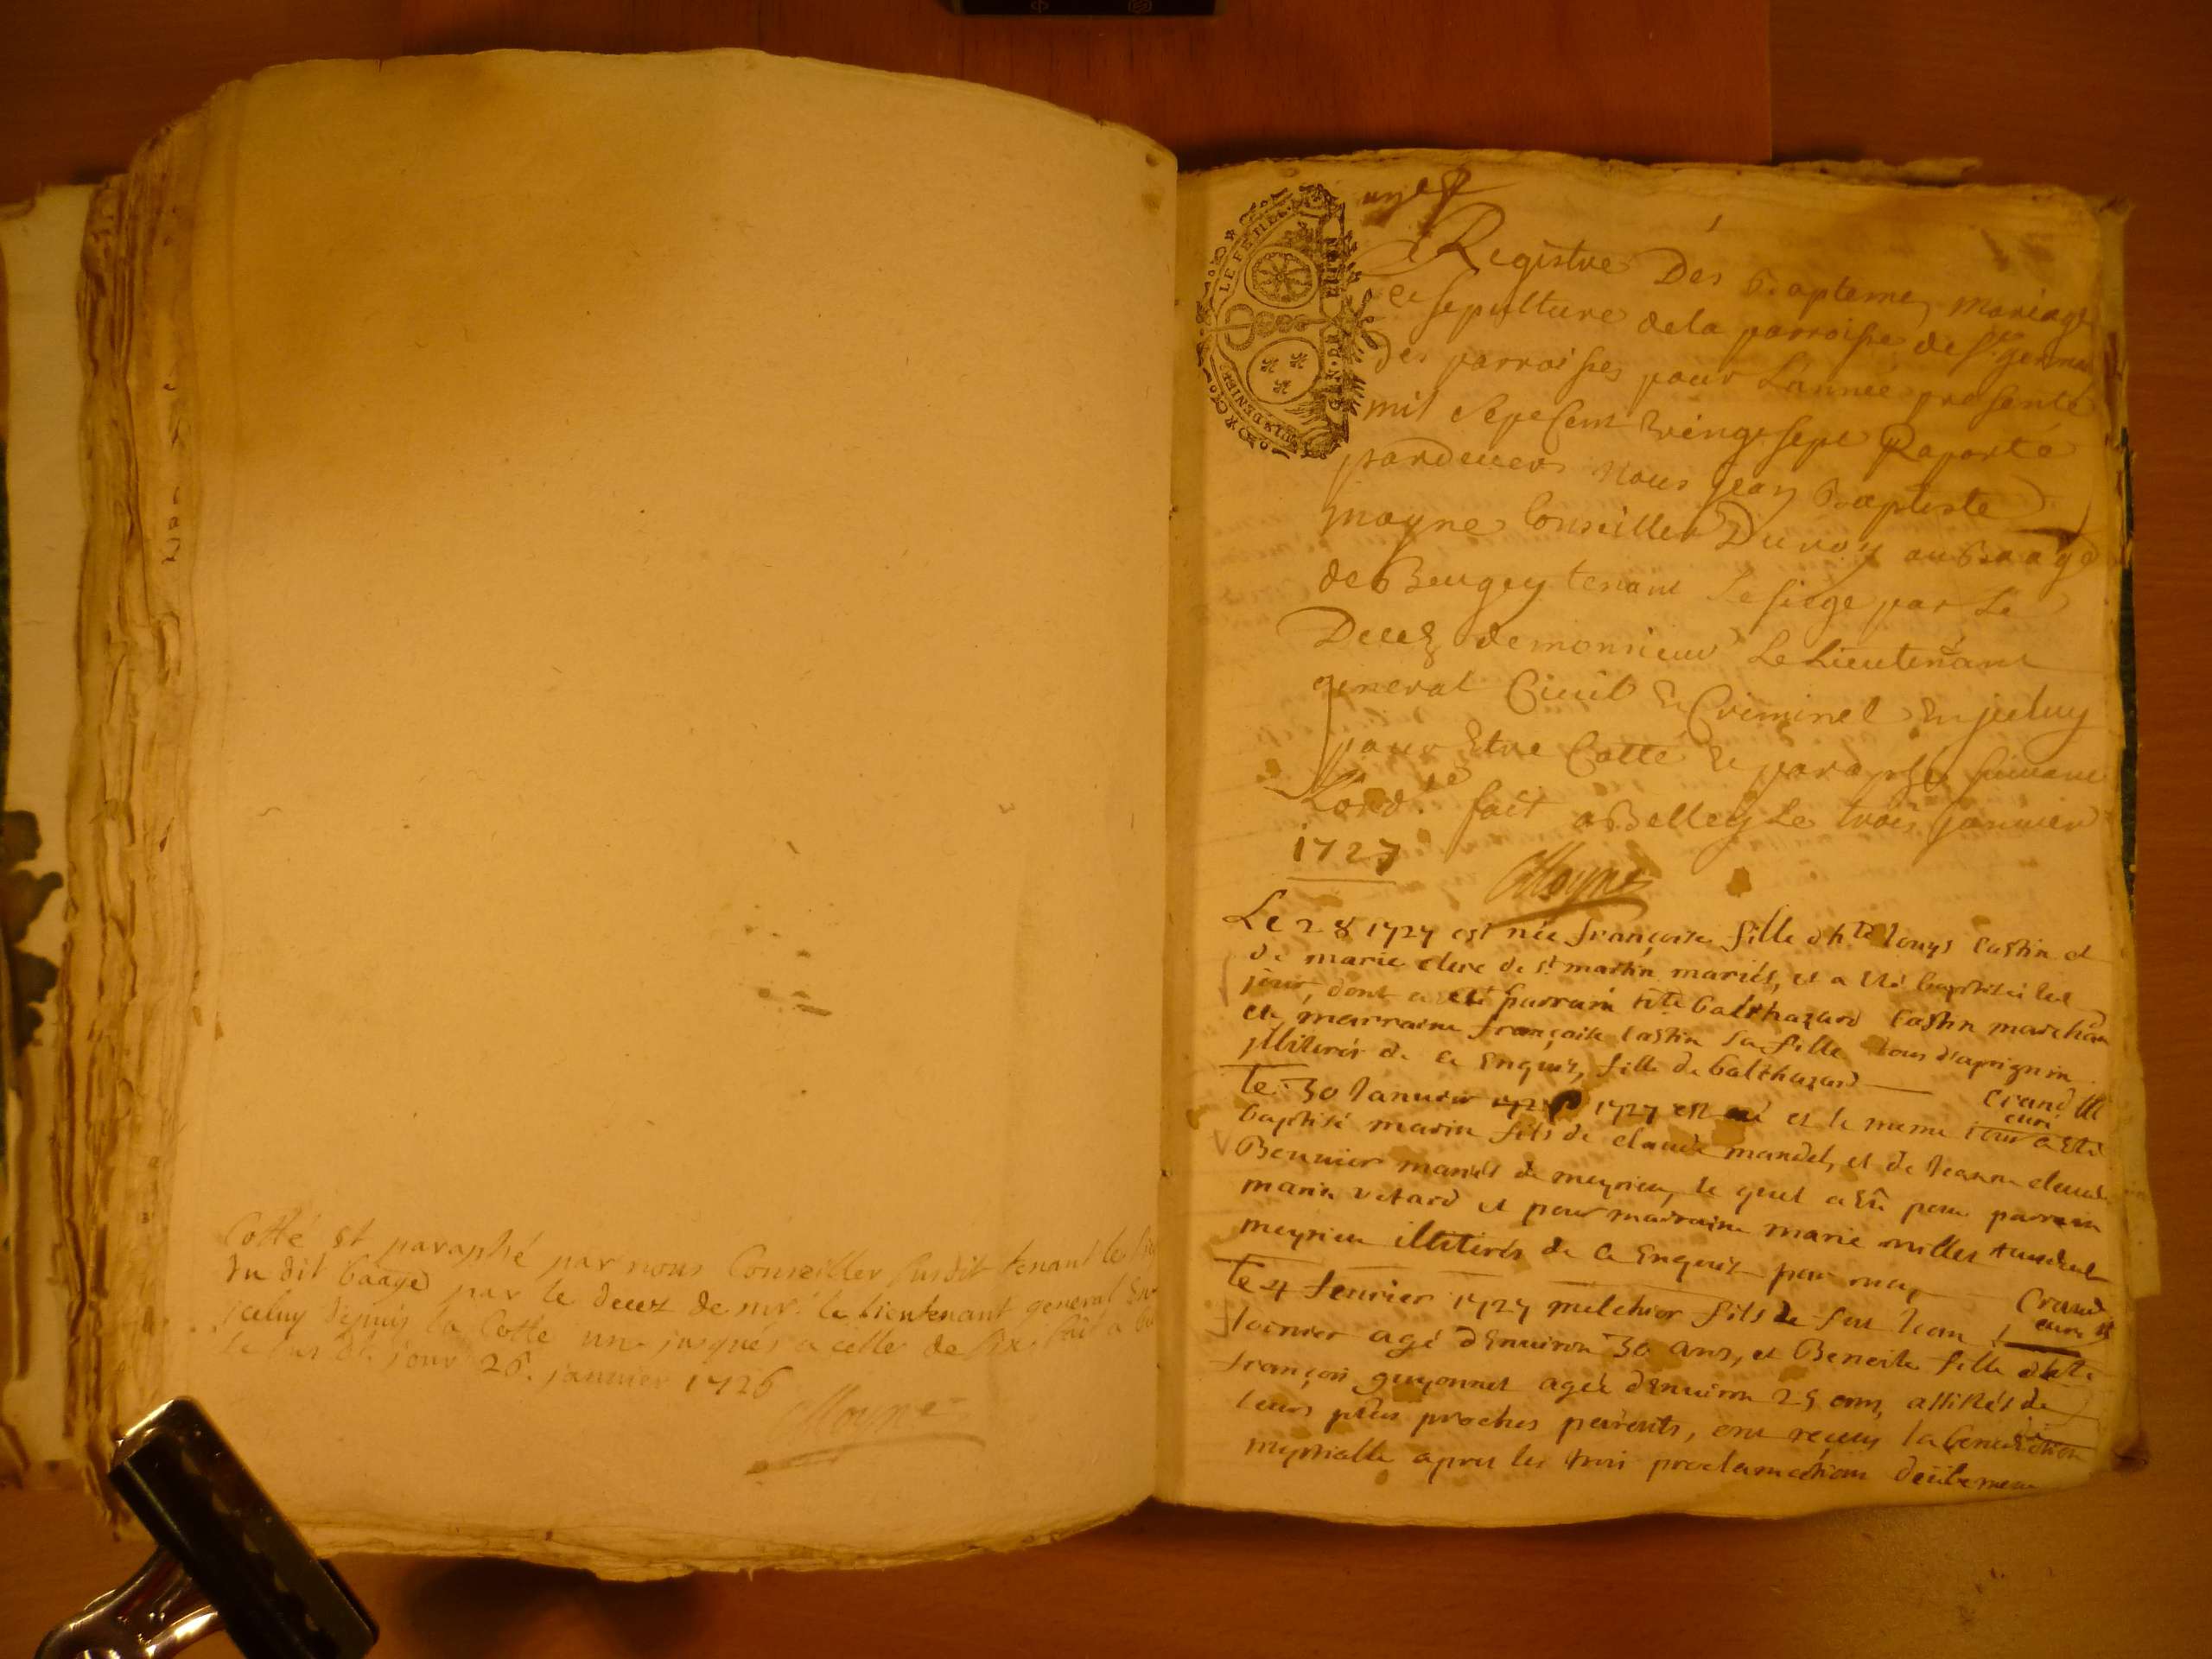 Cotté et paraphé par nous Conseiller susdit tenant le
du dit baage par le decez de mr. le lieutenant general
jceluy depuis la Cotte une jusques a celle de six. fait a
le sus dt. jour 26. janvier 1726
Moyne
LE FEUILLET
GEN. DE
DENIERS
Registre Des Baptemes mariage
et sepulture de la parroisse de St germai
des parroisses pour Lannee presente
mil sept cent vingt sept Raporté
pardevers nous Jean Baptiste
moyne Conseiller Du roy au Baage
de Beugey tenant Le siege par Le
Decez de monsieur Le Lieutenant
general Civil et Criminel en jceluy
pour Etre Cotté et paraphé suivant
Lord.ce fait a Belley Le trois janvier
1727
Moyne
Le 28 1727 est née françoise fille d'h.te louys Castin et
de marie clerc de st martin mariés, et a été baptisée led
jour, dont a été parrain h.te balthazard Castin marchan
et marraine françoise Castin sa fille tous d'apregnin
jlliterés de ce Enquis, fille de balthazard
Crand
curé
le 30 Januier 1727 est né et le meme jour a Eté
baptisé marin fils de claude mandel, et de Jeanne claud
Bennier mariés de meyrieu, le quel a Eû pour parrain
marin vetard et pour marraine marie millet
meyrieu illiterés de ce Enquis par moy
Crand
curé
le 4 feurier 1727 melchior fils de feu Jean
agé d'Enuiron 30 ans, et Benoite fille d'h.te
françois guyonnet agée d'Enuiron 25 ans, assistés de
leurs plus proches parents, ont receu la benediction
nuptialle apres les trois proclamations deüement